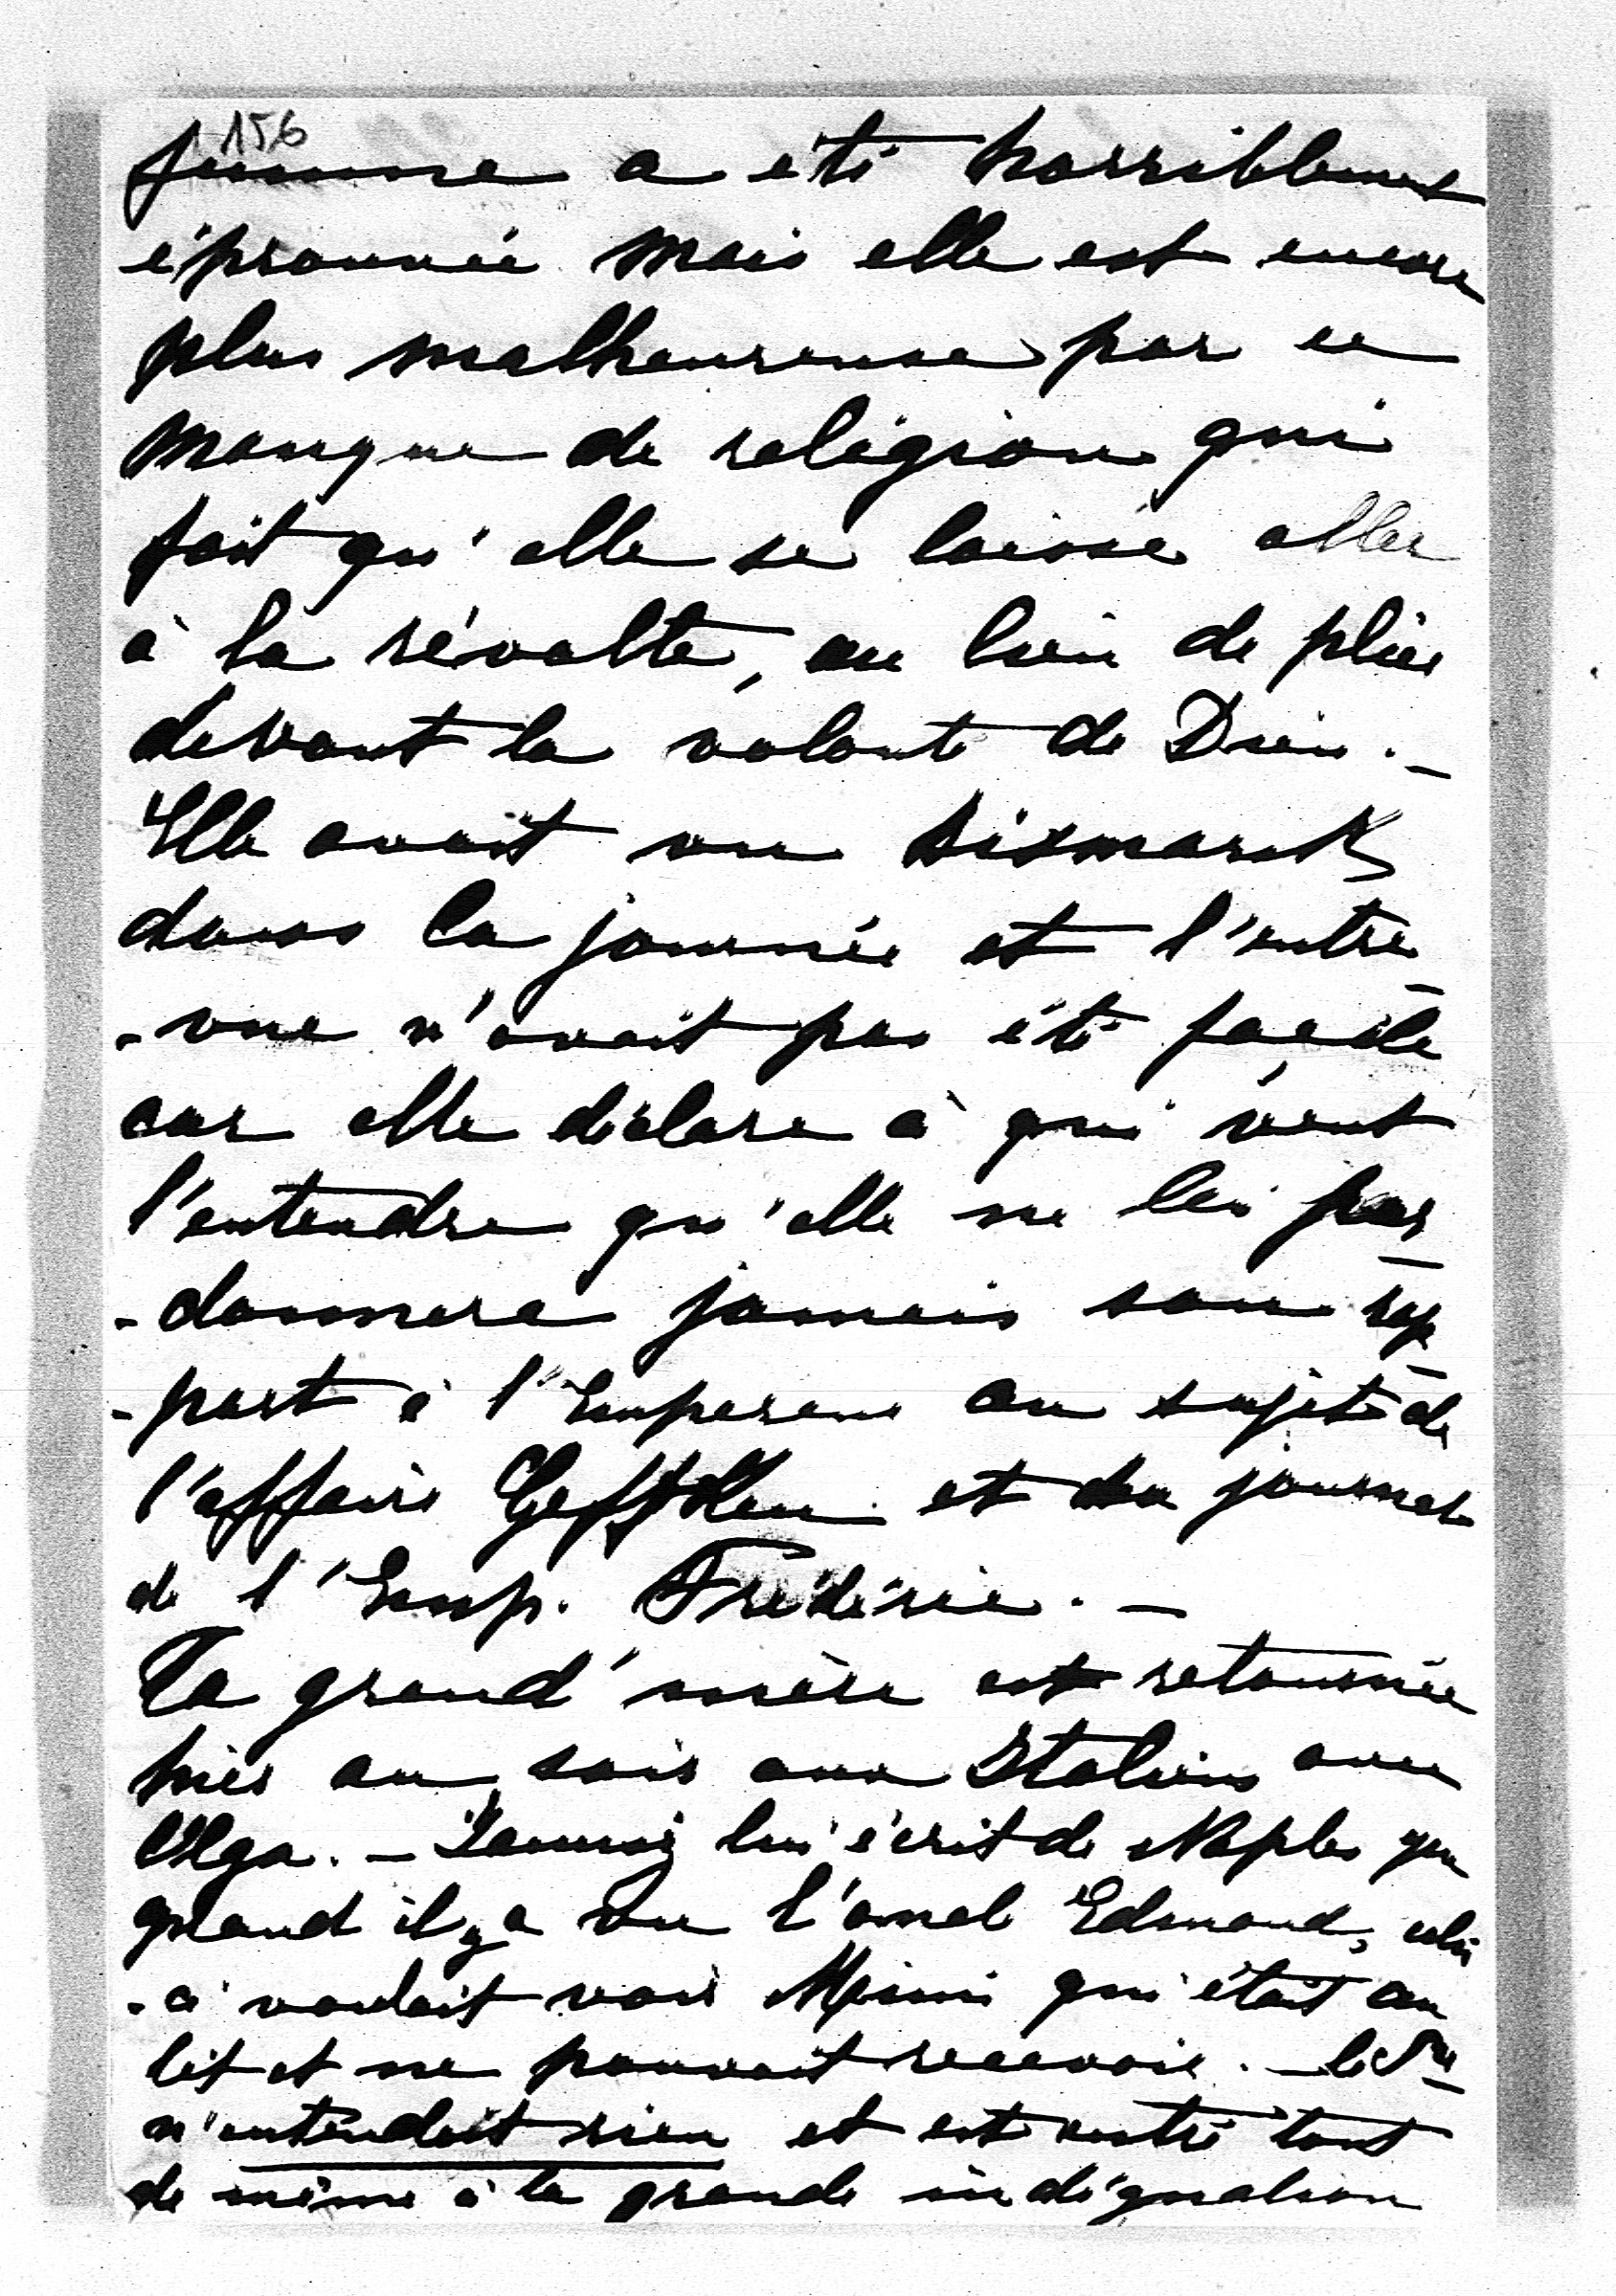 156
femme a été horriblement
éprouvée mais elle est encore
plus malheureuse par ce
manque de religion qui
fait qu'elle se laisse aller
à la révolte, au lieu de plier
devant la volonté de Dieu. _
Elle avait vu Bismarck
dans la journée et l'entre-
-vue n'avait pas été facile
car elle déclare à qui veut
l'entendre qu'elle ne lui par-
-donnera jamais son rap-
-port à l'Empereur au sujet de
l'affaire Geffken et du journal
de l'Emp. Frédéric. _
Ta grand'mère est retournée
hier au soir aux Italiens avec
Olga. _ lui écrit de Naples que
quand il y a vu l'amal Edmond, celui
-ci voulait voir Mimi qui était au
lit et ne pouvait recevoir. _ le
n'entendait rien et est entré tout
de même à la grande indignation